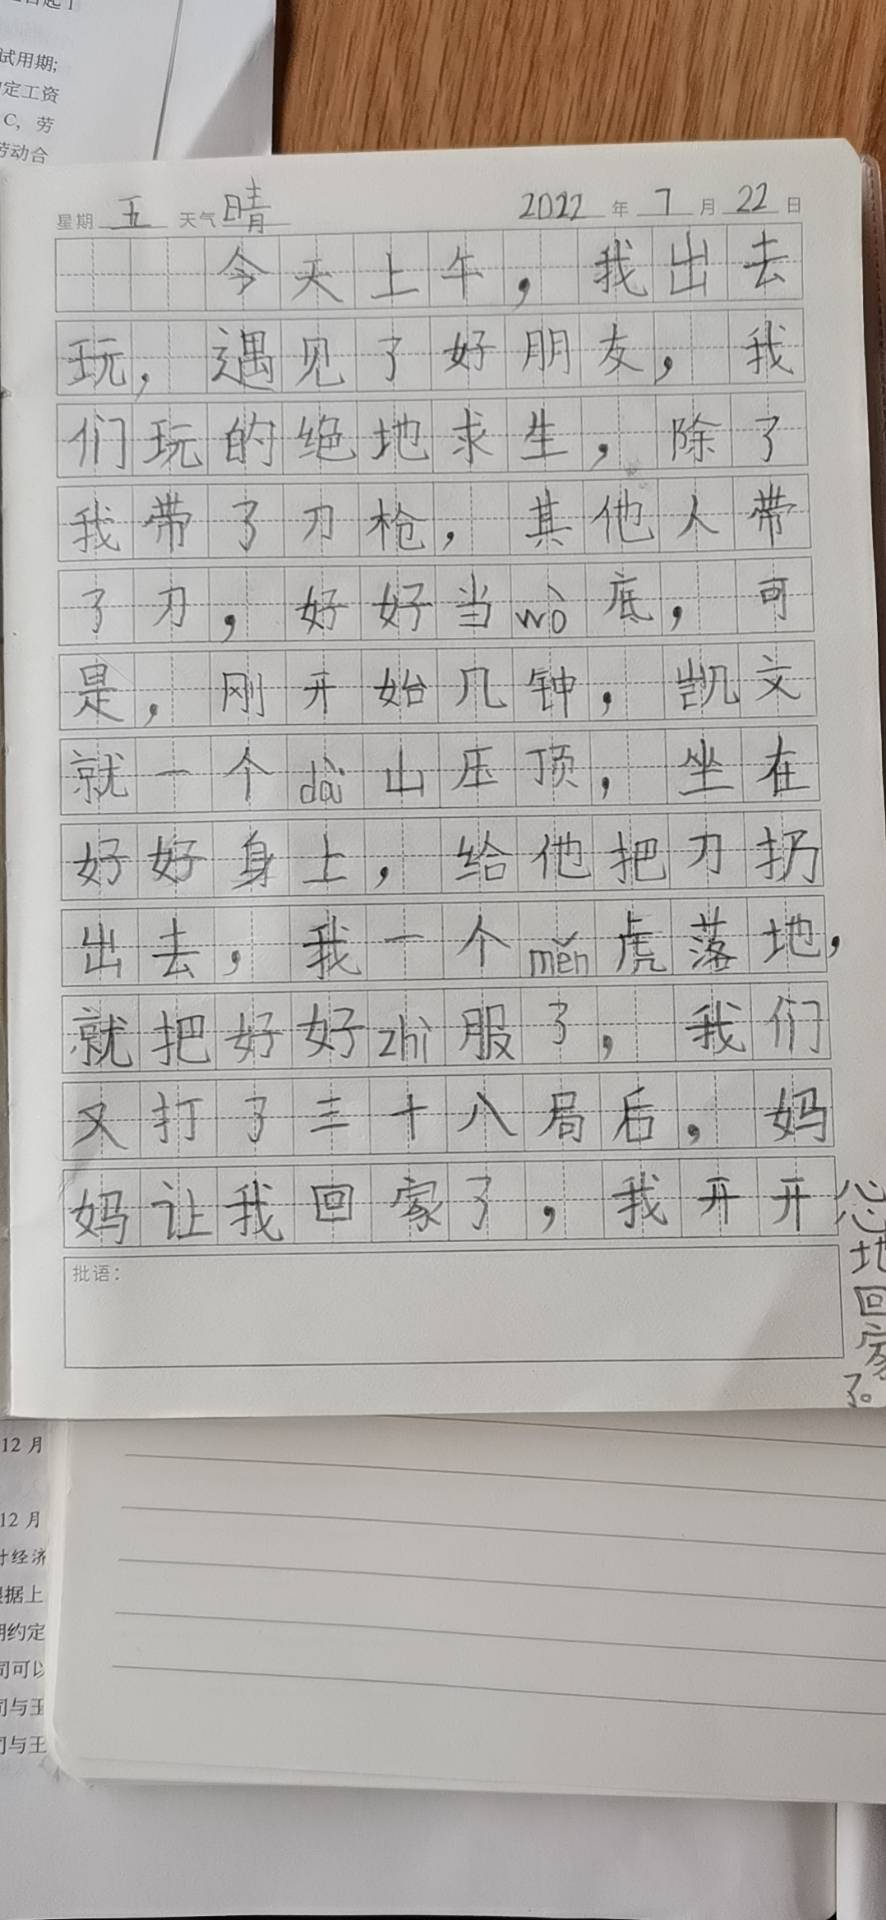 试用期;
定工资
C，劳
劳动合
星期 五 天气 晴 2022 年 7 月 22 日
今天上午，我出去
玩，遇见了好朋友，我
们玩的绝地求生，除了
我带了刀枪，其他人带
了刀，好好当wò底，可
是，刚开始几钟，凯文
就一个dài山压顶，坐在
好好身上，给他把刀扔
出去，我一个měn虎落地，
就把好好zhì服了，我们
又打了三十八局后，妈
妈让我回家了，我开开
心心地回家了。
批语：
12 月
12 月
计经济
根据上
期约定
司可以
司与王
司与王